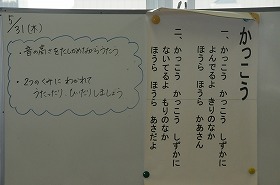 5/31(木)
・音の高さをたしかめながらうたう
・2つのくみに わかれて
うたったり、ひいたりしましょう
かっこう
一、かっこう かっこう しずかに
よんでるよ きりのなか
ほうら ほうら かあさん
二、かっこう かっこう しずかに
ないてるよ もりのなか
ほうら ほうら あさだよ